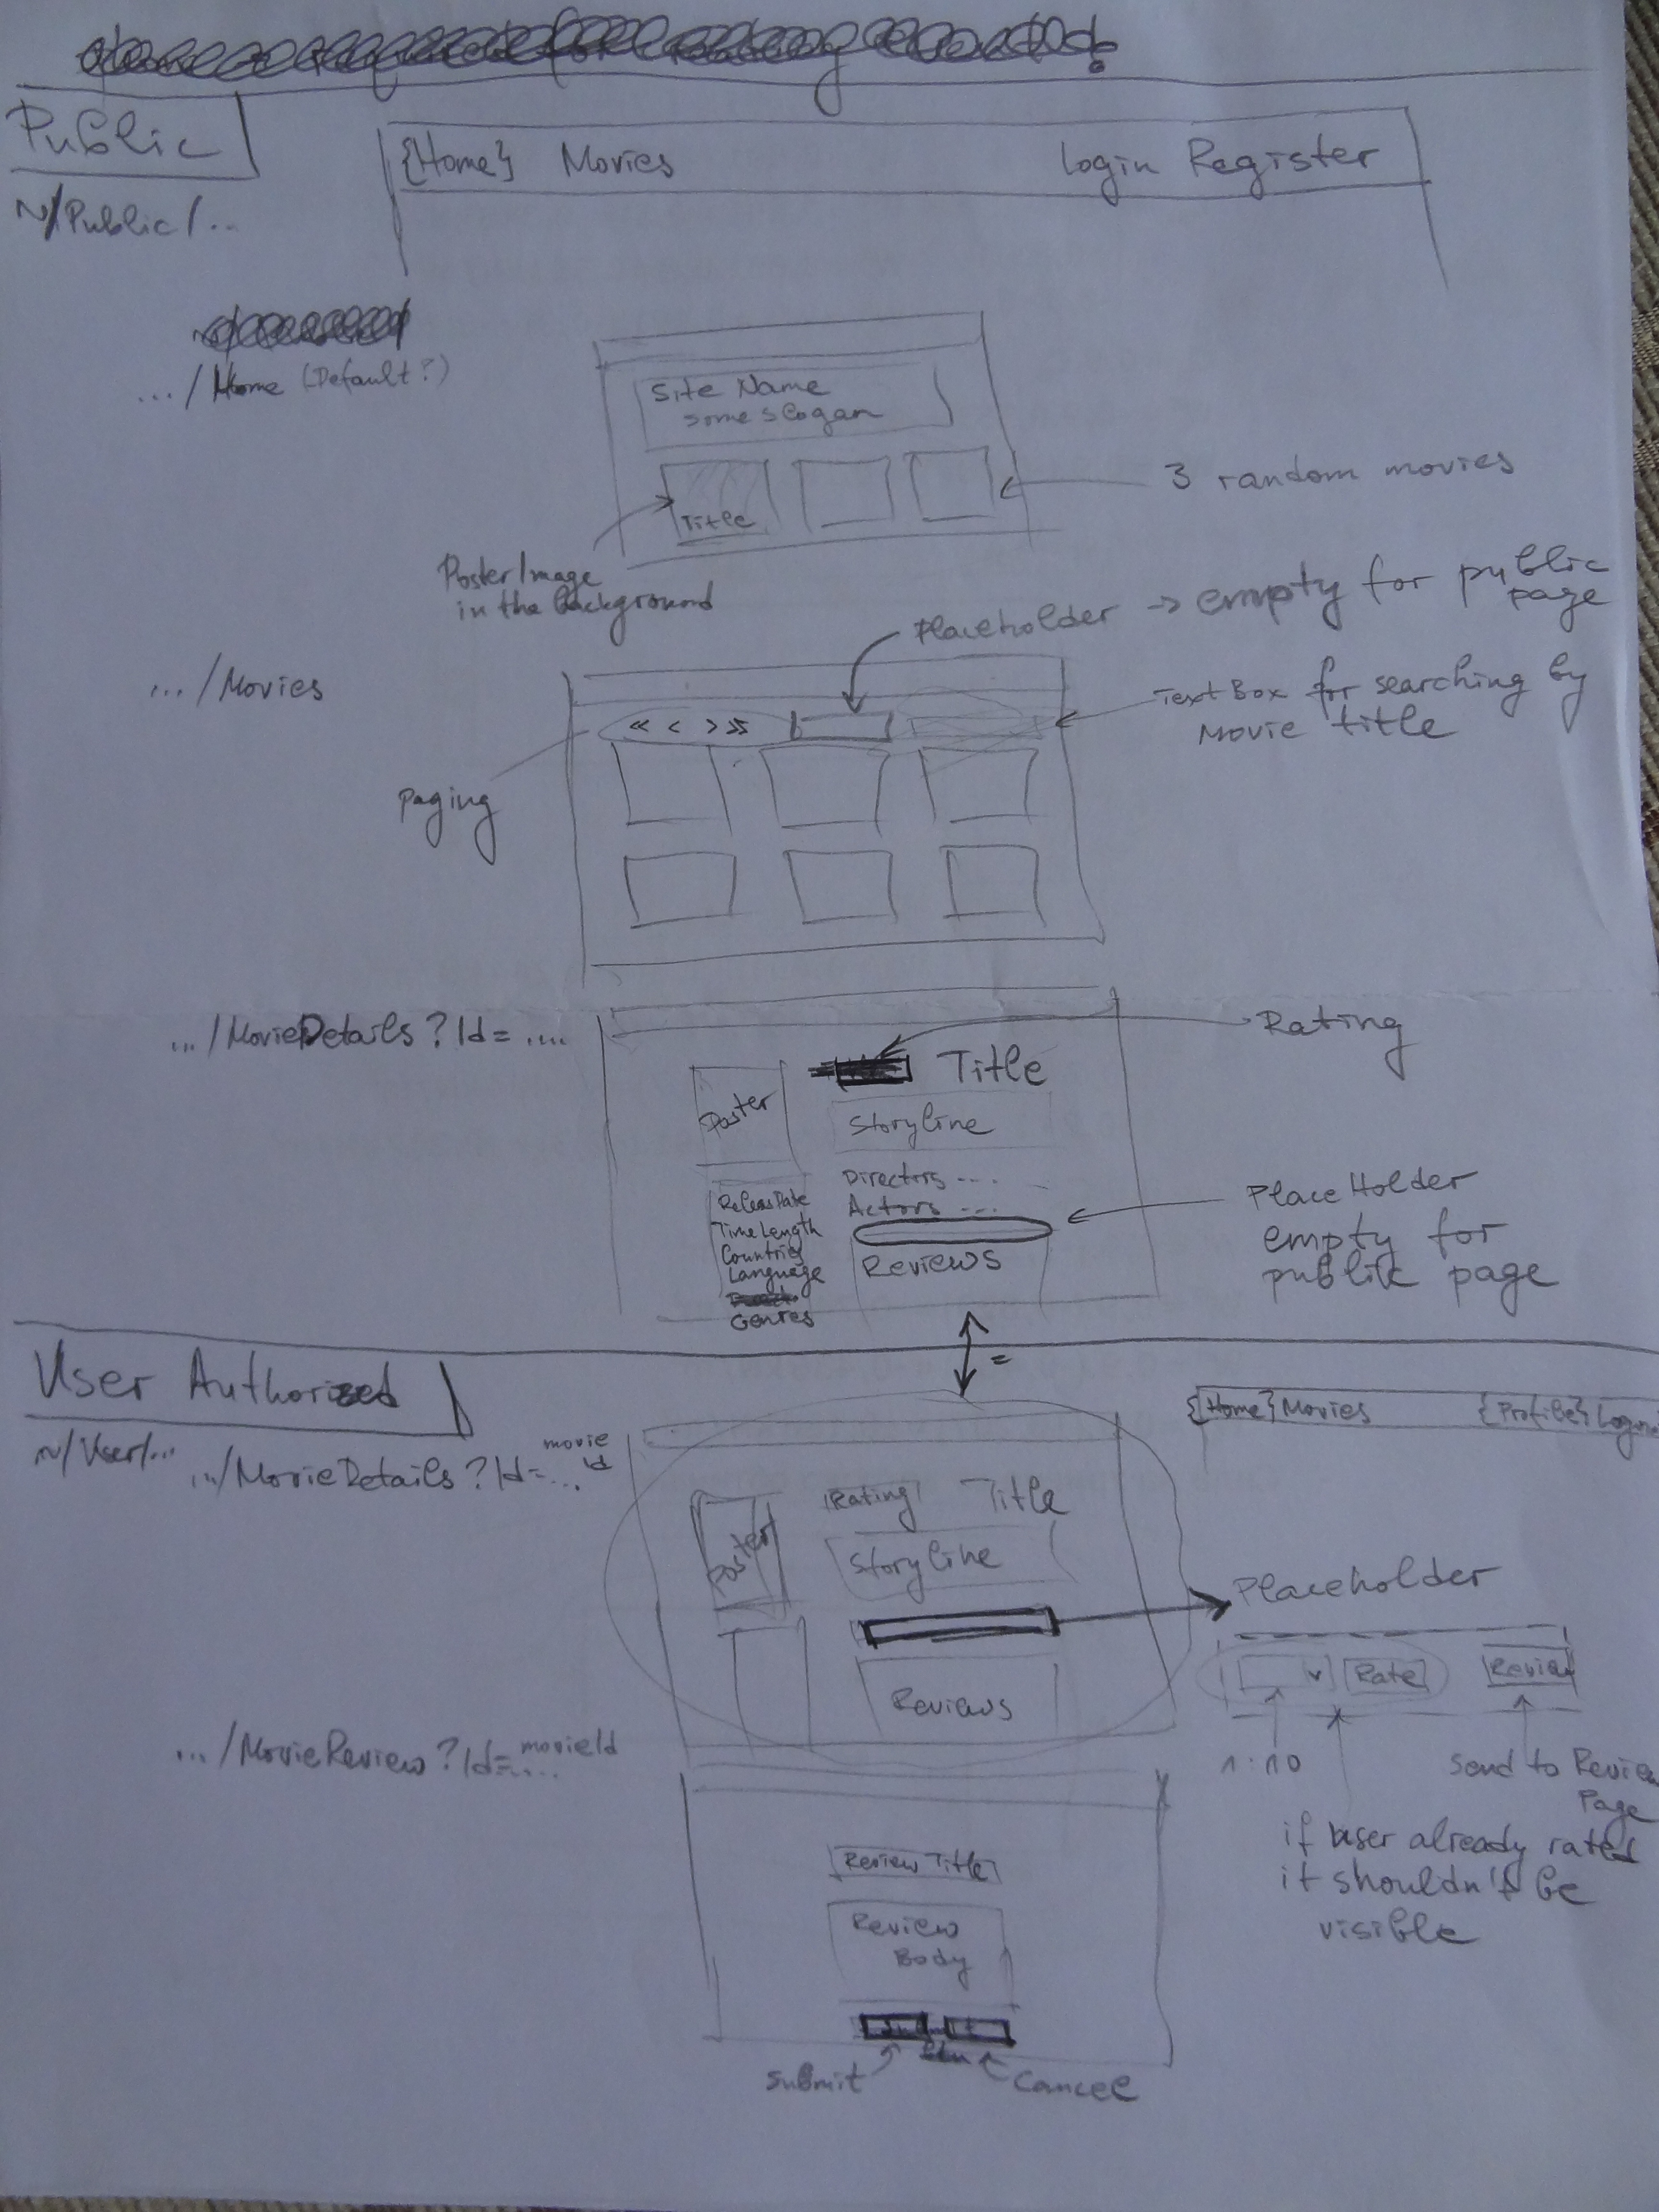 Public
{Home} Movies Login Register
~/Public/..
.../Home (Default?)
Site Name
some slogan
3 random movies
Title
Poster Image
in the background
Placeholder → empty for public
page
.../Movies
TextBox for searching by
Movie title
<< < > >>
Paging
.../MovieDetails?Id=....
Rating
Title
Poster
Storyline
Directors ....
Actors ...
PlaceHolder
empty for
public page
ReleasDate
TimeLength
Countries
Language
Genres
Reviews
=
User Authorized
{Home} Movies {Profile} Logou
~/User/...
.../MovieDetails?Id=... movie
id
Rating Title
Poster
Storyline
Placeholder
v Rate Review
Reviews
1:10
send to Review
Page
if user already rated
it shouldn't be
visible
.../MovieReview?Id=.... movieId
Review Title
Review
Body
Submit Cancel